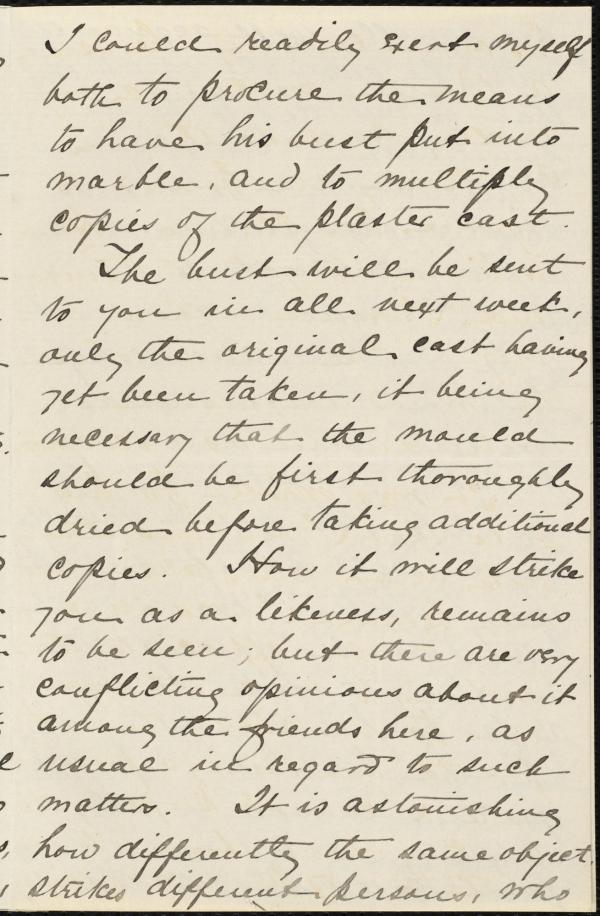 I could readily exert myself
both to procure the means
to have his bust put into
marble, and to multiply
copies of the plaster cast.
The bust will be sent
to you in all next week,
only the original cast having
yet been taken, it being
necessary that the mould
should be first thoroughly
dried before taking additional
copies. How it will strike
you as a likeness, remains
to be seen; but there are very
conflicting opinions about it
among the friends here, as
usual in regard to such
matters. It is astonishing
how differently the same object
strikes different persons, who